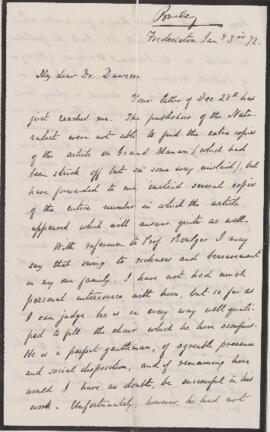 Fredericton Jan 3rd 72.
My dear Dr. Dawson.
Your letter of Dec 27th has
just reached me. The publishers of the Natu-
ralist were not able to find the extra copies
of the article on Grand Manan (which had
been struck off but in some way mislaid), but
have forwarded to me instead several copies
of the entire number in which the article
appeared which will answer quite as well.
With reference to Prof. I may
say that owing to sickness and bereavement
in my own family. I have not had much
personal intercourse with him, but so far as
I can judge he is in every way well quali-
fied to fill the chair which he now occupies.
He is a perfect gentleman, of agreeable presence
and social disposition, and if remaining here
would I have no doubt, be successful in his
work. Unfortunately, however, he had not